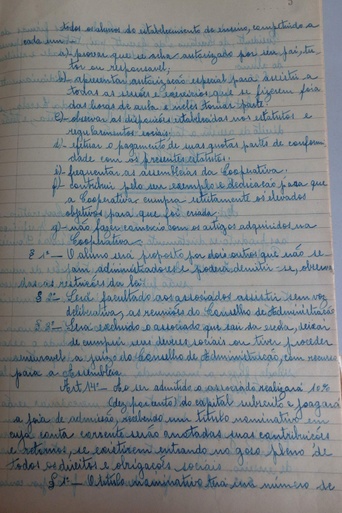 todos os alunos do estabelecimento de ensino, competindo a
cada um:
a) provar que se acha autorizado por seu pai, tu-
tor ou responsavel;
b) apresentar autorização especial para assistir a
todas as sessões e exercicios que se fizerem fora
das horas de aula e neles tomar parte;
c) observar as disposições estabelecidas nos estatutos e
regulamentos sociais;
d) efetuar o pagamento de suas quotas partes de confor-
dade com os presentes estatutos.
e) frequentar as assembléias da Cooperativa.
f) contribuir pelo seu exemplo e dedicação para que
a Cooperativa cumpra retamente os elevados
objetivos para que foi criada;
g) não fazer comercio com os artigos adquiridos na
Cooperativa.
§ 1º — O aluno será proposto por dois outros que não se-
jam administradores e poderá demitir-se, observa-
das as restrições da lei
§ 2º — Será facultado aos associados assistir sem voz
deliberativa, as reuniões do Conselho de Administração
§ 3º — Será excluido o associado que sair da escola, deixar
de cumprir seus deveres sociais ou tiver proceder
a juizo do Conselho de Administração, com recurso
para a Assembléia.
Art. 14º — Ao ser admitido o associado realizará 10%
(dez por cento) do capital subscrito e pagará
a joia de admissão, recebendo um titulo nominativo em
cuja conta corrente serão anotadas suas contribuições
e retornos se existirem entrando no gozo pleno de
todos os direitos e obrigações sociais.
§ 1º — O titulo nominativo terá um número de